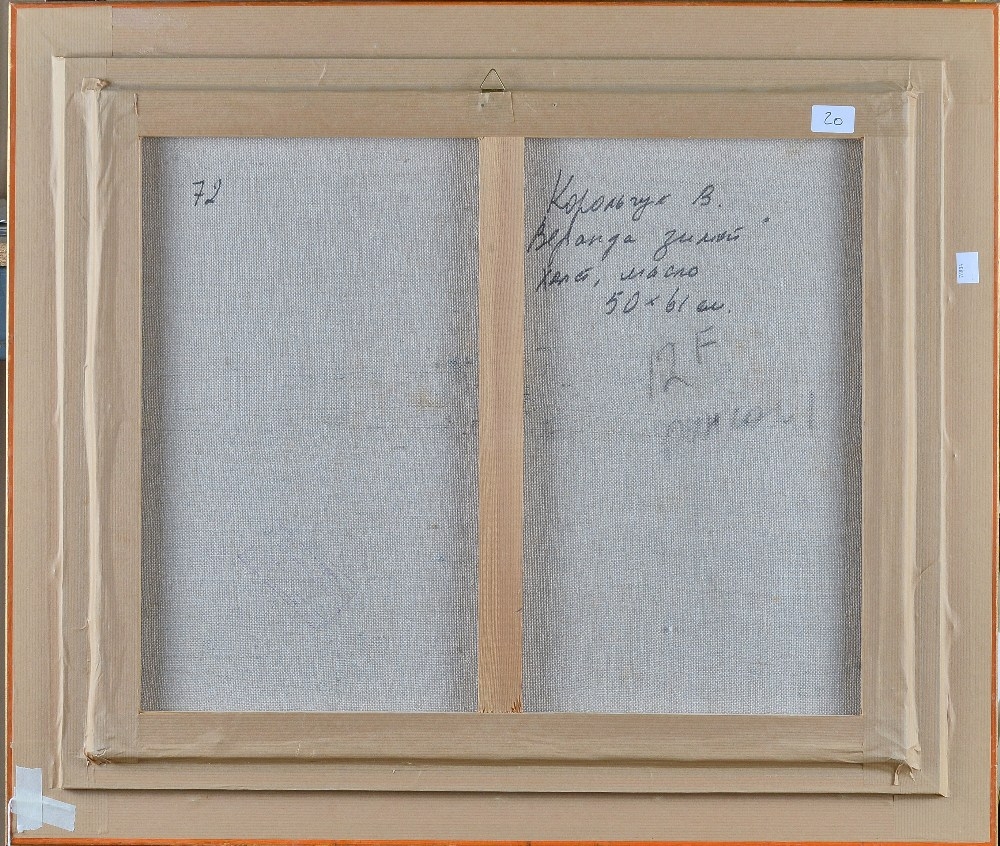 20
72
Корольчук В.
Веранда зимой"
Холст, масло
50 x 61 см.
12 F